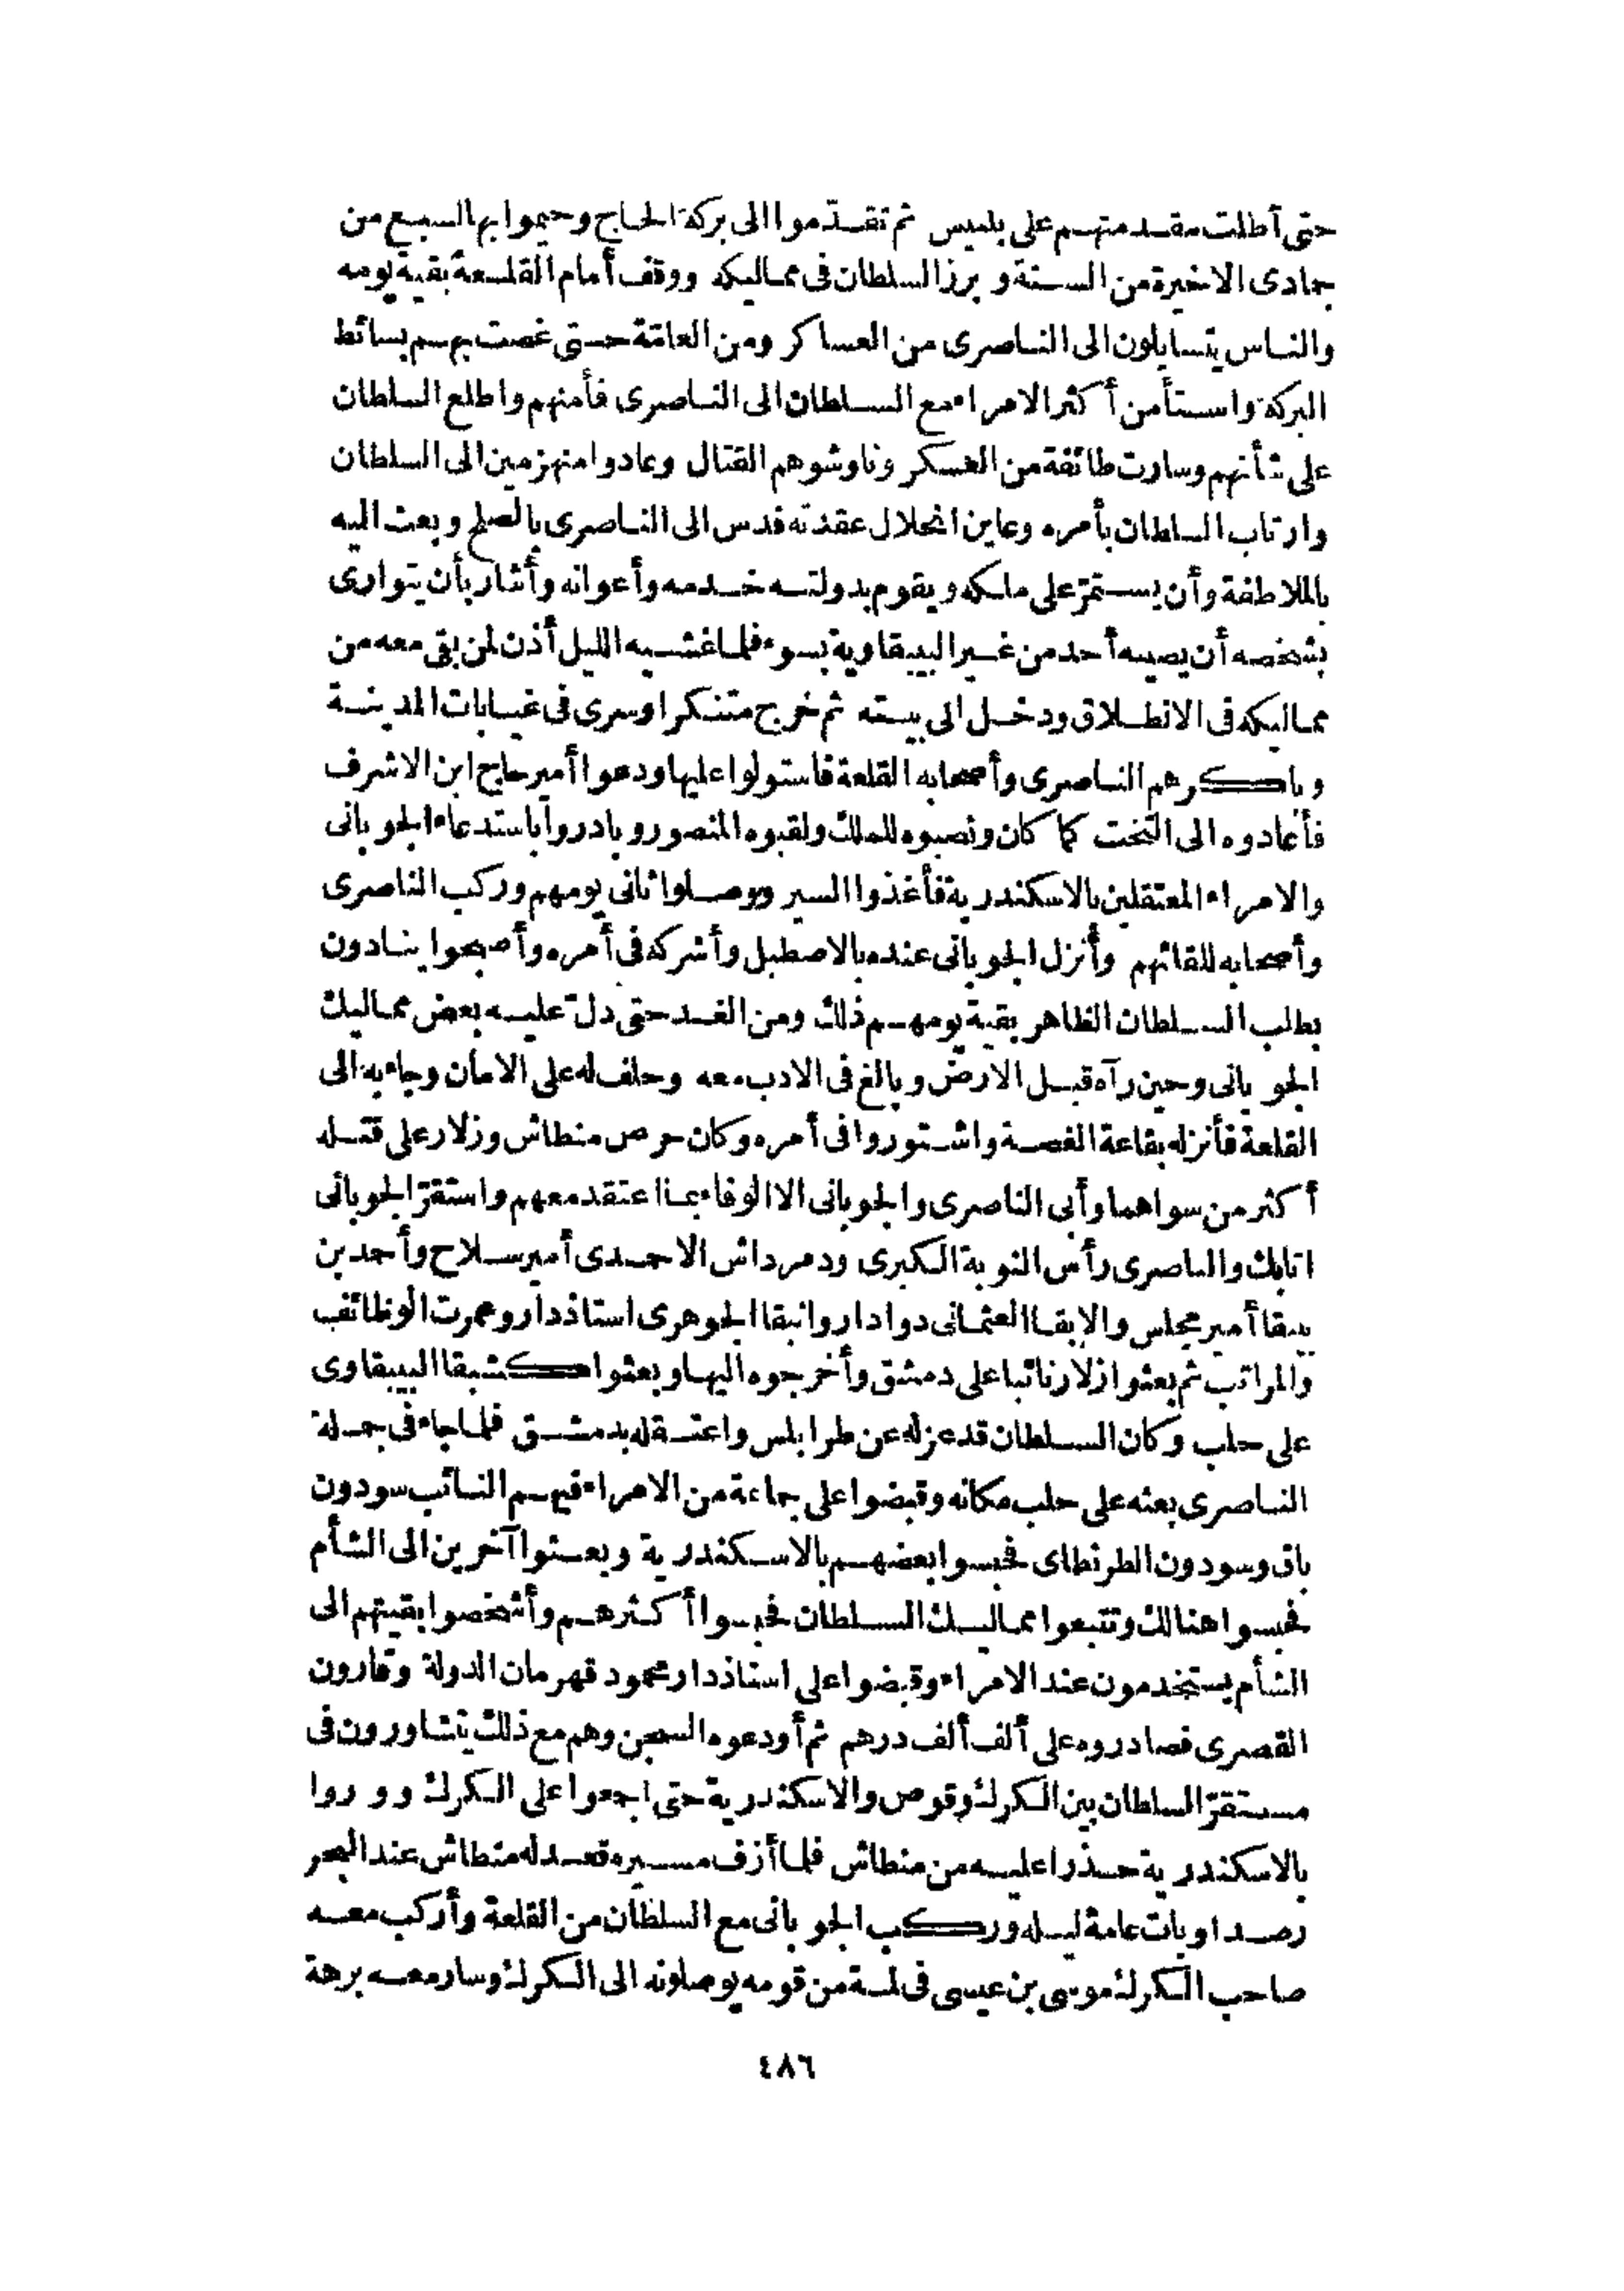 حتى أطلت مقدمتهم على بلبيس ثم تقدّموا الى بركة الحاج وخيموا بها السبع من
جمادى الاخيرة من السنة و برز السلطان فى مماليكه ووقف أمام القلعة بقية يومه
والناس يتسايلون الى الناصرى من العساكر ومن العامّة حتى غصت بهم بسائط
البركة واستأمن أكثر الامراء مع السلطان الى الناصرى فأمنهم واطلع السلطان
على شأنهم وسارت طائفة من العسكر وناوشوهم القتال وعادوا منهزمين الى السلطان
وارتاب السلطان بأمره وعاين انحلال عقدته فدس الى الناصرى بالصلح وبعث اليه
بالملاطفة وأن يستمرّ على ملكه ويقوم بدولته خدمه وأعوانه وأشار بأن يتوارى
بشخصه أن يصيبه أحد من غير البيبقاوية بسوء فلما غشيه الليل أذن لمن بقى معه من
مماليكه فى الانطلاق ودخل الى بيته ثم خرج متنكرا وسرى فى غيابات المدينة
وباكرهم الناصرى وأصحابه القلعة فاستولوا عليها ودعوا أمير حاج ابن الاشرف
فأعادوه الى التخت كما كان ونصبوه للملك ولقبوه المنصور وبادروا باستدعاء الجوبانى
والامراء المعتقلين بالاسكندرية فأغذوا السير ووصلوا ثانى يومهم وركب الناصرى
وأصحابه للقائهم وأنزل الجوبانى عنده بالاصطبل وأشركه فى أمره وأصبحوا ينادون
بطلب السلطان الظاهر بقية يومهم ذلك ومن الغد حتى دلّ عليه بعض مماليك
الجوبانى وحين رآه قبل الارض وبالغ فى الادب معه وحلف له على الامان وجاء به الى
القلعة فأنزله بقاعة الفضة واشتوروا فى أمره وكان حرص منطاش وزلار على قتله
أكثر من سواهما وأبى الناصرى والجوبانى الا الوفاء بما اعتقد معهم واستقرّ الجوبانى
اتابك والناصرى رأس النوبة الكبرى ودمرداش الاحمدى أمير سلاح وأحمد بن
بيبقا أمير مجلس والابقا العثمانى دوادار وانبقا الجوهرى استاذدار وعمرت الوظائف
والمراتب ثم بعثوا زلار نائبا على دمشق وأخرجوه اليها وبعثوا كمشبقا البيبقاوى
على حلب وكان السلطان قد عزله عن طرابلس واعتقله بدمشق فلما جاء فى جملة
الناصرى بعثه على حلب مكانه وقبضوا على جماعة من الامراء فيهم النائب سودون
باق وسودون الطرنطاى فحبسوا بعضهم بالاسكندرية وبعثوا آخرين الى الشأم
فحبسوا هنالك وتتبعوا مماليك السلطان فحبسوا أكثرهم وأشخصوا بقيتهم الى
الشأم يستخدمون عند الامراء وقبضوا على استاذدار محمود قهرمان الدولة وقارون
القصرى فصادروه على ألف ألف درهم ثم أودعوه السجن وهم مع ذلك يتشاورون فى
مستقرّ السلطان بين الكرك وقوص والاسكندرية حتى اجمعوا على الكرك وو روا
بالاسكندرية حذرا عليه من منطاش فلما أزف مسيره قعد له منطاش عند البحر
رصدا وبات عامة ليله وركب الجوبانى مع السلطان من القلعة وأركب معه
صاحب الكرك موسى بن عيسى فى لمة من قومه يوصلونه الى الكرك وسار معه برهة
٤٨٦